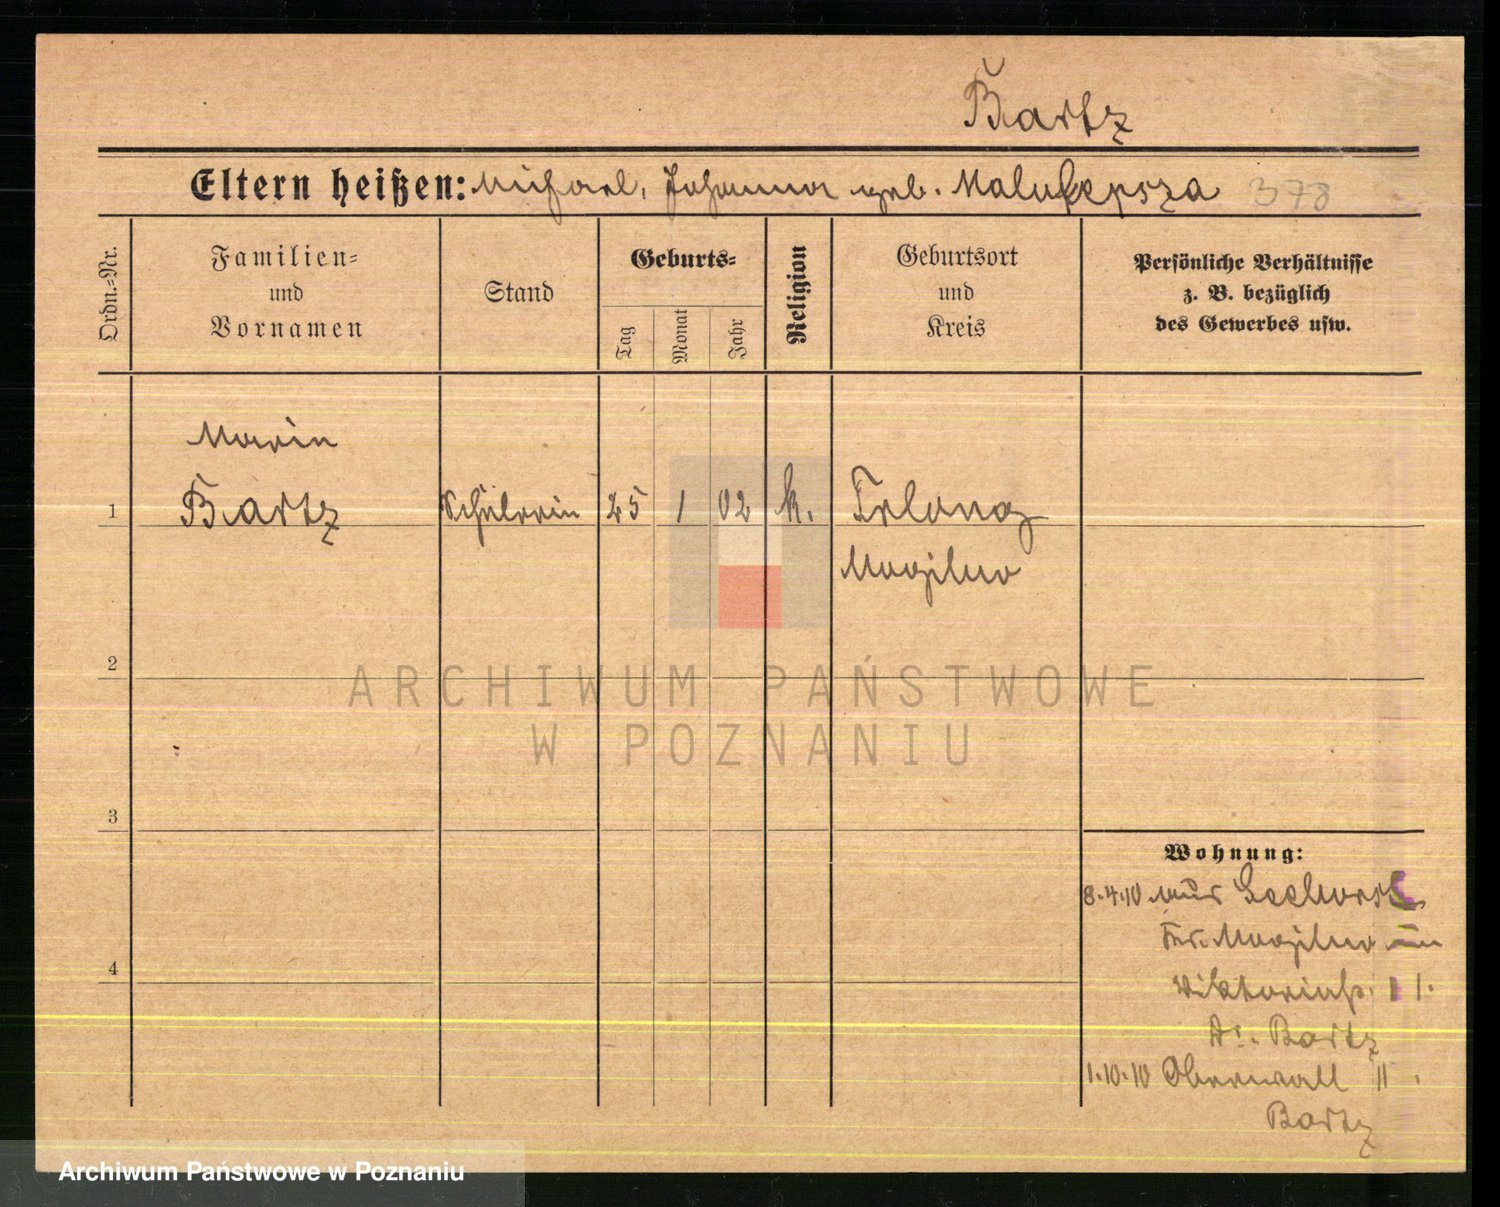 Bartz
Eltern heißen: Michael, Johanna geb. Malukepsza 378
Ordn.=Nr.
Familien=
und
Vornamen
Stand
Geburts=
Tag
Monat
Jahr
Religion
Geburtsort
und
Kreis
Persönliche Verhältnisse
z. B. bezüglich
des Gewerbes usw.
Maria
1 Bartz Schülerin 25 1 02 k. Trlong
Mogilno
2
ARCHIWUM PAŃSTWOWE
W POZNANIU
3
Wohnung:
8.4.10 aus Seehorst
Kr. Mogilno
4
Viktoriastr.
Bartz
1.10.10 Oberwall 11
Bartz
Archiwum Państwowe w Poznaniu